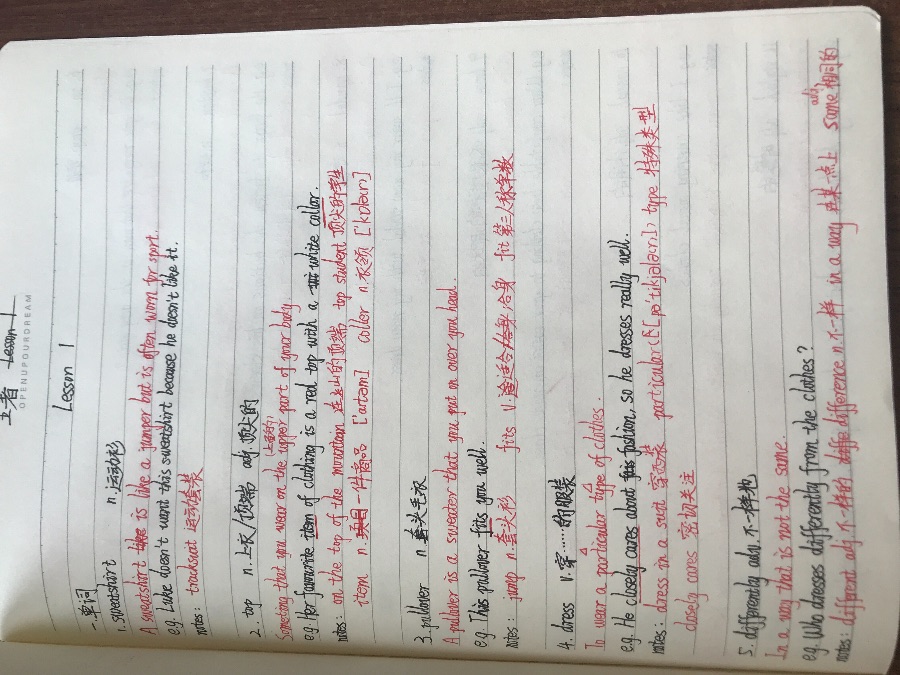 王者 Lesson 1
OPENUPYOURDREAM
Lesson 1
一.单词
1. sweatshirt n.运动衫
A sweatshirt is like a jumper but is often worn for sport.
e.g. Luke doesn't want this sweatshirt because he doesn't like it.
notes: tracksuat 运动套装
2. top n.上衣/顶端 adj.顶尖的
Someting that you wear on the upper(上面的) part of your body
e.g. Her favourite item of clothing is a red top with a white collar.
notes: on the top of the mountain 在大山的顶端 top student 顶尖的学生
item n. 一件商品 ['aɪtəm] coller n.衣领
3. pullover n.套头毛衣
A pullover is a sweater that you put on over you head.
e.g. This pullover fits you well.
notes: jump n.套头衫 fits v.适合,合身 fit 第三人称单数
4. dress v.穿……的服装
To wear a particular type of clothes.
e.g. He closely cares about fashion, so he dresses really well.
notes: dress in a suit 穿西装 particular type 特殊类型
closely cares 密切关注
5. differently adv.不一样地
In a way that is not the same.
e.g. Who dresses differently from the clothes?
notes: different adj.不一样的 difference n.不一样 in a way 在某一点上 same adj.相同的